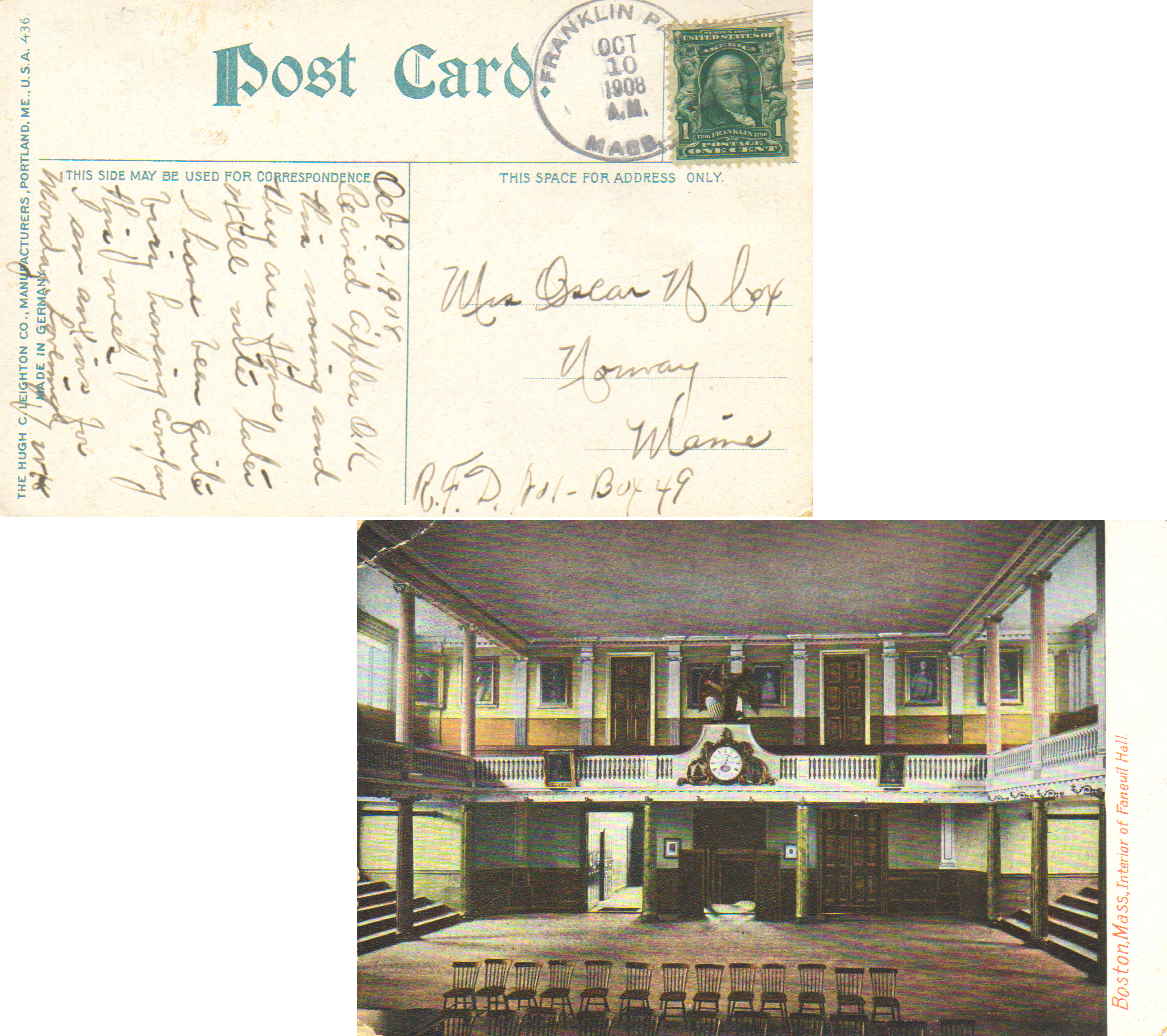 Post Card.
FRANKLIN PA
OCT
10
1908
A.M.
MASS.
SERIES 1902
UNITED STATES OF
AMERICA
1 1706 FRANKLIN 1790 1
POSTAGE
ONE CENT
THE HUGH C. LEIGHTON CO., MANUFACTURERS, PORTLAND, ME., U.S.A. 436.
MADE IN GERMANY
THIS SIDE MAY BE USED FOR CORRESPONDENCE
THIS SPACE FOR ADDRESS ONLY.
Oct 9-1908
Recived apples O.K
this morning and
they are fine
will write later
I have been quite
busy having company
this week
I am anxious for
Monday evening
Mrs Oscar N Cox
Norway
Maine
R.F.D. No 1 - Box 49
Boston, Mass., Interior of Faneuil Hall.